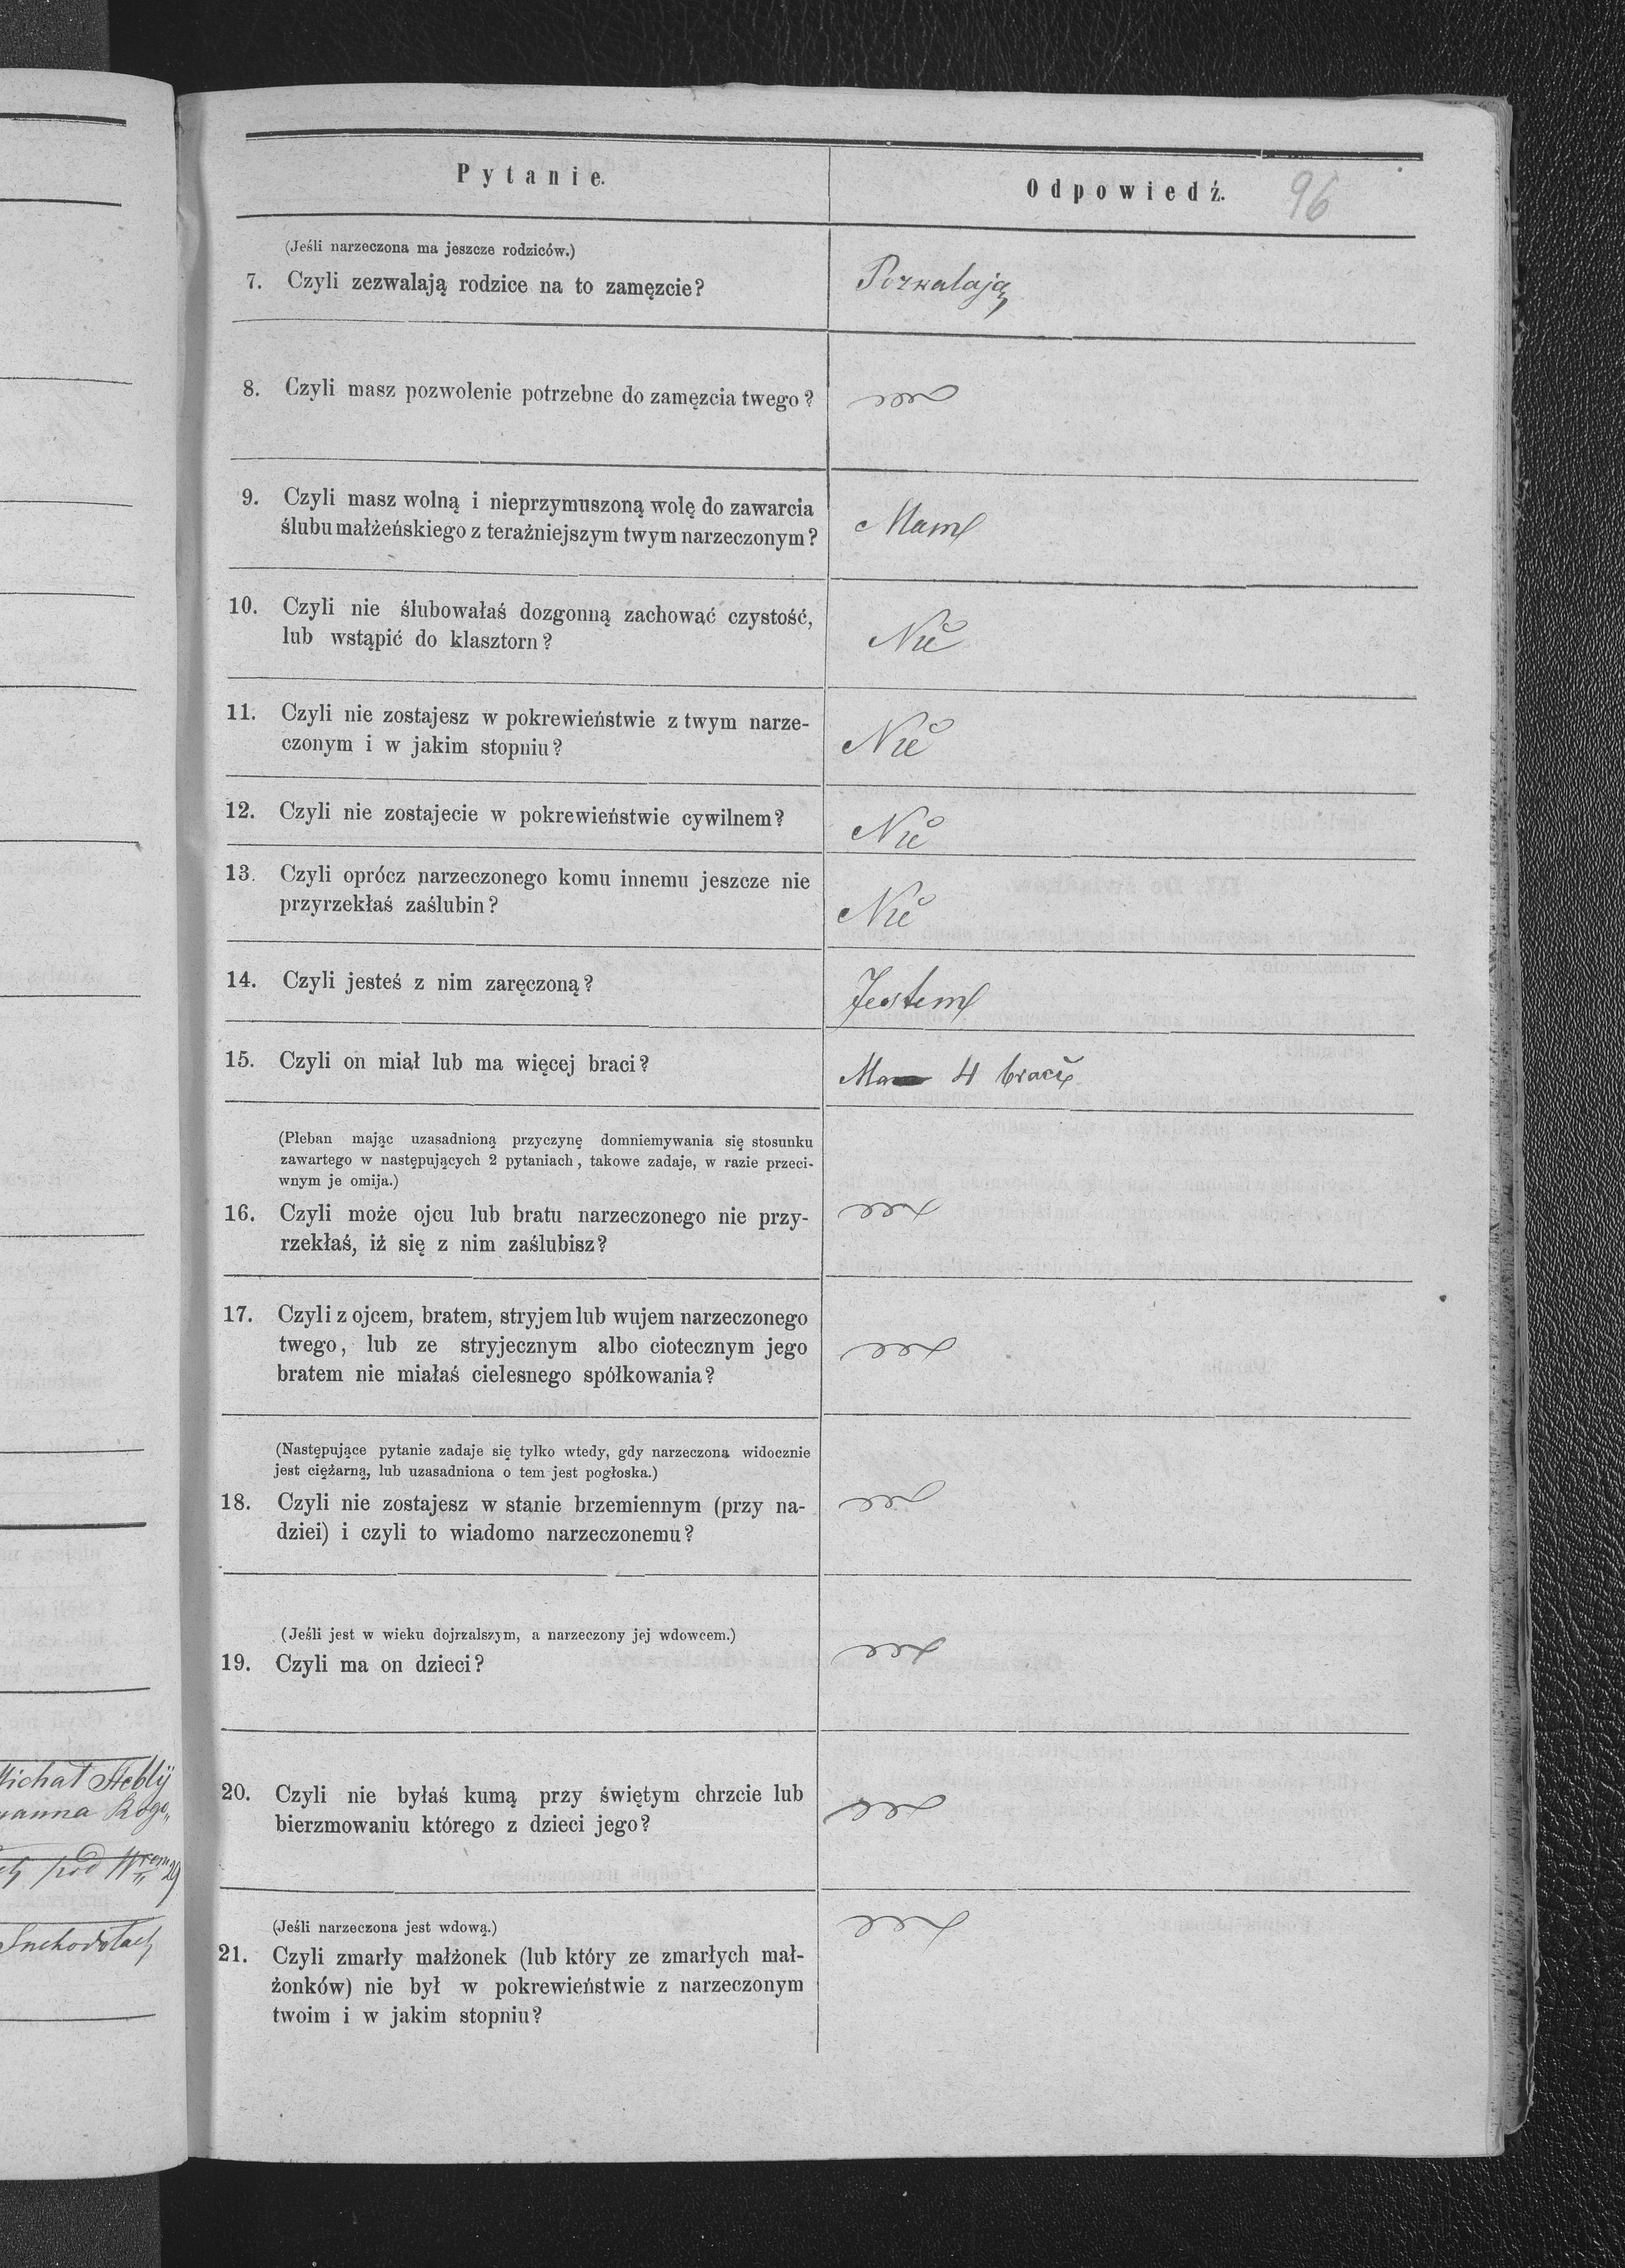 Pytanie.
Odpowiedź.
96
(Jeśli narzeczona ma jeszcze rodziców.)
7. Czyli zezwalają rodzice na to zamęzcie?
Pozwalają
8. Czyli masz pozwolenie potrzebne do zamęzcia twego?
9. Czyli masz wolną i nieprzymuszoną wolę do zawarcia
ślubu małżeńskiego z teraźniejszym twym narzeczonym?
Mam
10. Czyli nie ślubowałaś dozgonną zachować czystość,
lub wstąpić do klasztorn?
Nie
11. Czyli nie zostajesz w pokrewieństwie z twym narze-
czonym i w jakim stopniu?
Nie
12. Czyli nie zostajecie w pokrewieństwie cywilnem?
Nie
13. Czyli oprócz narzeczonego komu innemu jeszcze nie
przyrzekłaś zaślubin?
Nie
14. Czyli jesteś z nim zaręczoną?
Jestem
15. Czyli on miał lub ma więcej braci?
Ma 4 braci
(Pleban mając uzasadnioną przyczynę domniemywania się stosunku
zawartego w następujących 2 pytaniach, takowe zadaje, w razie przeci-
wnym je omija.)
16. Czyli może ojcu lub bratu narzeczonego nie przy-
rzekłaś, iż się z nim zaślubisz?
17. Czyli z ojcem, bratem, stryjem lub wujem narzeczonego
twego, lub ze stryjecznym albo ciotecznym jego
bratem nie miałaś cielesnego spółkowania?
(Następujące pytanie zadaje się tylko wtedy, gdy narzeczona widocznie
jest ciężarną, lub uzasadniona o tem jest pogłoska.)
18. Czyli nie zostajesz w stanie brzemiennym (przy na-
dziei) i czyli to wiadomo narzeczonemu?
(Jeśli jest w wieku dojrzalszym, a narzeczony jej wdowcem.)
19. Czyli ma on dzieci?
20. Czyli nie byłaś kumą przy świętym chrzcie lub
bierzmowaniu którego z dzieci jego?
(Jeśli narzeczona jest wdową.)
21. Czyli zmarły małżonek (lub który ze zmarłych mał-
żonków) nie był w pokrewieństwie z narzeczonym
twoim i w jakim stopniu?